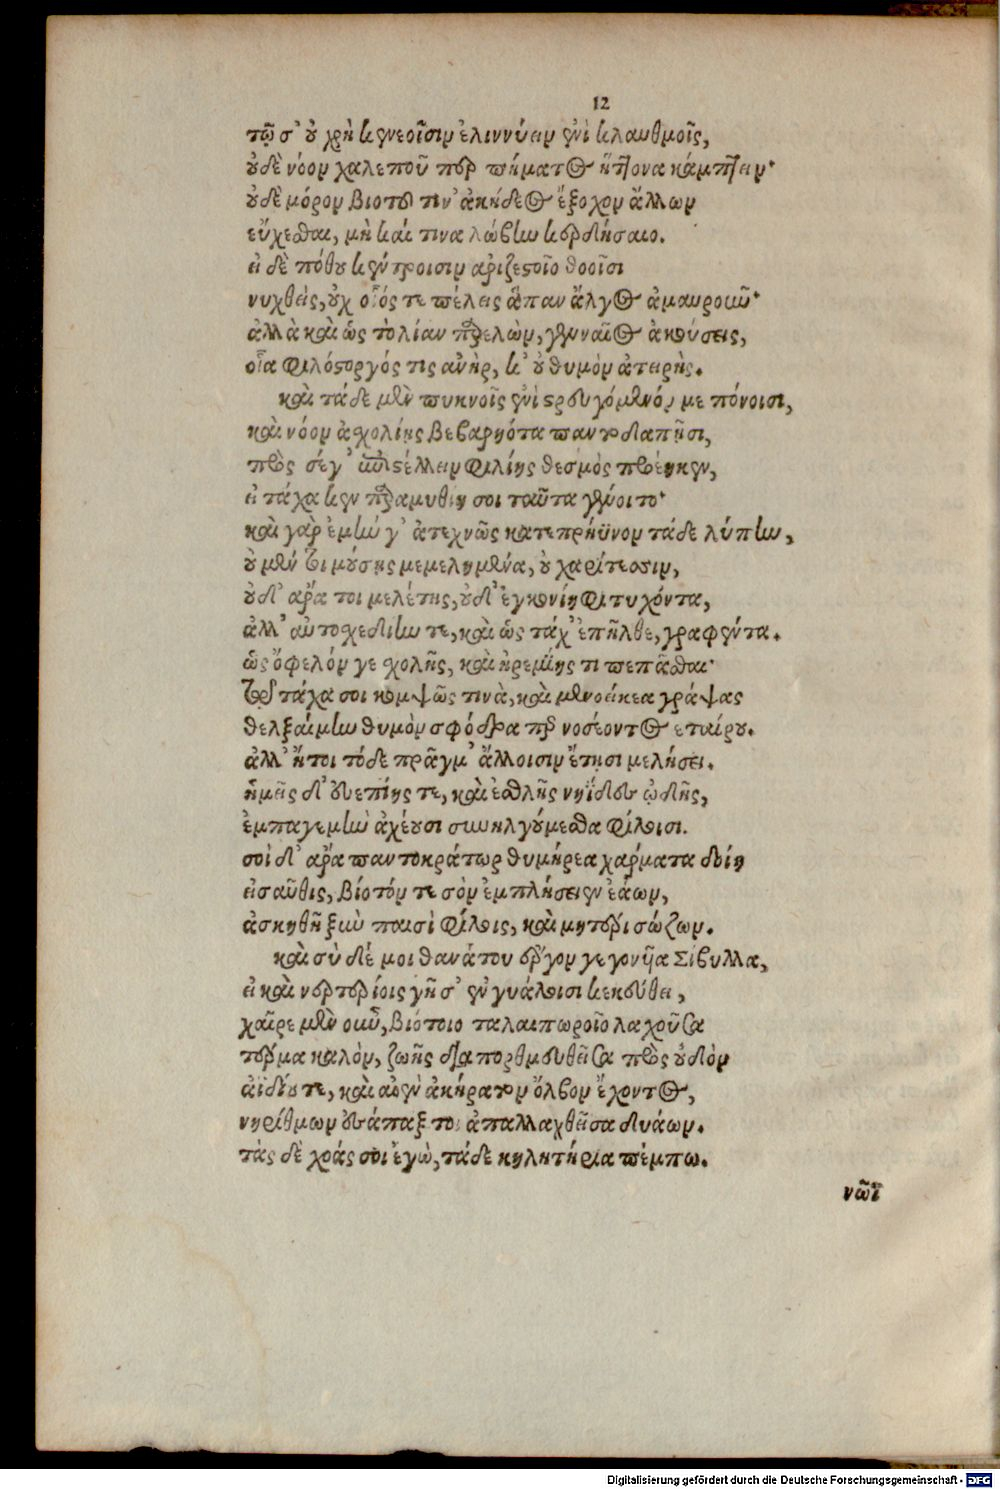 12
τῷ σ' οὐ χρὴ κενεοῖσιν ἐλιννύειν ἐνὶ κλαυθμοῖς,
οὐδὲ νόον χαλεποῦ περ πήματος ἥττονα κάμπτειν·
οὐδὲ μόρον βιότου τιν' ἀκήδεος ἔξοχον ἄλλων
εὔχεσθαι, μὴ καί τινα λώβην κερδήσαιο.
εἰ δὲ πόθου κέντροισιν ἀριζεστοῖο θοοῖσι
νυχθεὶς, οὐχ οἷός τε πέλεις ἅπαν ἄλγος ἀμαυροῦν·
ἀλλὰ καὶ ὣς τὸ λίαν παρελὼν, γενναῖος ἀκούσεις,
οἷα φιλόστοργός τις ἀνὴρ, κ' οὐ θυμὸν ἀτειρὴς.
καὶ τάδε μὲν πυκνοῖς ἐνὶ στρευγόμενόν με πόνοισι,
καὶ νόον ἀσχολίης βεβαρηότα παντοδαπῇσι,
πρὸς σέ γ' ἀποστέλλειν φιλίης θεσμὸς προέηκεν,
εἰ τάχα κεν παραμυθίη σοι ταῦτα γένοιτο·
καὶ γὰρ ἐμὴν γ' ἀτεχνῶς κατεπρήϋνον τάδε λύπην,
οὐ μέν τι μούσης μεμελημένα, οὐ χαρίτεσσιν,
οὐδ' ἄρα τοι μελέτης, οὐδ' ἐγκονίηφι τυχόντα,
ἀλλ' αὐτοσχεδίην τε, καὶ ὣς τάχ' ἐπῆλθε, γραφέντα.
ὡς ὄφελόν γε σχολῆς, καὶ ἠρεμίης τι πεπᾶσθαι·
τῷ τάχα σοι κομψῶς τινὰ, καὶ μενοεικέα γράψας
θελξαίμην θυμὸν σφόδρα περ νοσέοντος ἑταίρου.
ἀλλ' ἤτοι τόδε πρᾶγμ' ἄλλοισιν ἔτῃσι μελήσει.
ἡμεῖς δ' εὐεπίης τε, καὶ ἐσθλῆς νήϊδες ᾠδῆς,
ἔμπαγεμὴν ἀχέουσι συνηλγούμεσθα φίλοισι.
σοὶ δ' ἄρα παντοκράτωρ θυμήρεα χάρματα δοίη
εἰσαῦθις, βίοτόν τε σὸν ἐμπλήσειεν ἐάων,
ἀσκηθῆ ξὺν παισὶ φίλοις, καὶ μητέρι σώζων.
καὶ σὺ δέ μοι θανάτου ἔργον γεγονῦα Σίβυλλα,
εἰ καὶ νερτερίοις γῆ σ' ἐν γυάλοισι κεκεύθει,
χαῖρε μὲν οὖν, βιότοιο ταλαιπωροῖο λαχοῦσα
τέρμα καλὸν, ζωῆς διαπορθμευθεῖσα πρὸς οὐδὸν
ἀϊδίου τε, καὶ αἰὲν ἀκήρατον ὄλβον ἔχοντος,
νηρίθμων εἰσάπαξ το ἀπαλλαχθεῖσα δυάων.
τὰς δὲ χοάς σοι ἐγὼ, τάδε κηλητήρια πέμπω.
νῶϊ
Digitalisierung gefördert durch die Deutsche Forschungsgemeinschaft - DFG